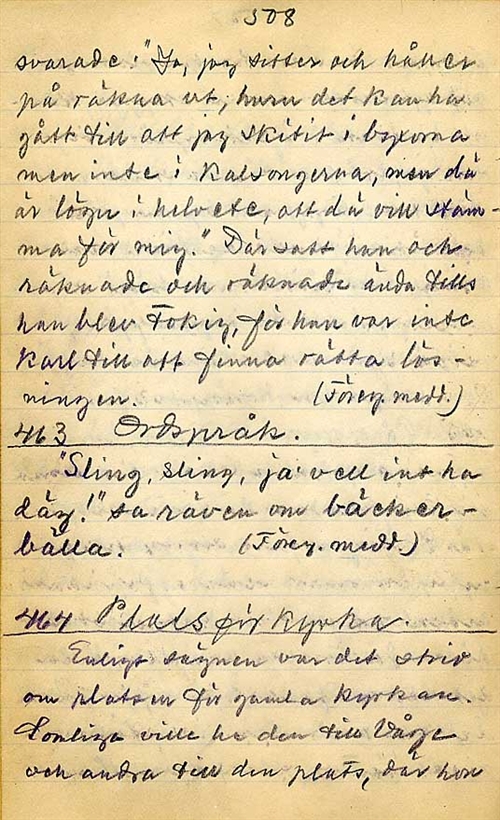 508
svarade: "Ja, jag sitter och håller
på räkna ut, huru det kan ha
gått till att jag skitit i byxorna
men inte i kalsongerna, men då
är lögn i helvete, att du vill stäm-
ma för mig." Där satt han och
räknade och räknade ända tills
han blev tokig, för han var inte
karl till att finna rätta lös-
ningen. (Föreg. medd.)
463 Ordspråk.
"Sling, sling, ja vell int ha
däg!" sa räven om bäcker-
bälla. (Föreg. medd.)
464 Plats för kyrka.
Enligt sägnen var det strid
om platsen för gamla kyrkan.
Somliga ville ha den till Vårge
och andra till den plats, där hon